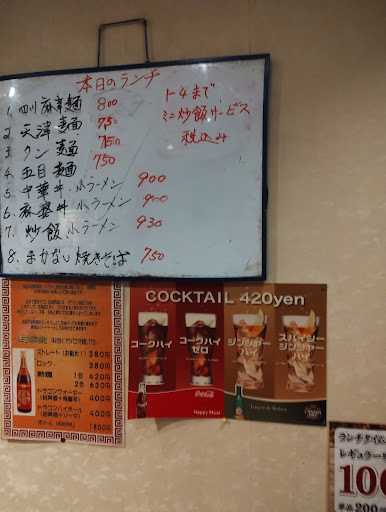 本日のランチ
1. 四川麻婆麺 800
2. 天津麺 750
3. タンメン 750
4. 五目麺 750
5. 中華丼 小ラーメン 900
6. 麻婆丼 小ラーメン 900
7. 炒飯 小ラーメン 930
8. まかない焼きそば 750
1〜4まで
ミニ炒飯サービス
税込み
ストレート(お勧め!) 380円
ロック・ 380円
熱燗 1合 420円
2合 630円
ドラゴンウォーター 400円
ドラゴンハイボール 400円
ボトル 1800円
COCKTAIL 420yen
コークハイ
コークハイ
ゼロ
ジンジャー
ハイ
スパイシー
ジンジャー
ハイ
Coca-Cola
Happy Meal
Enjoy & Relax
ランチタイム
レギュラー
100
単品200